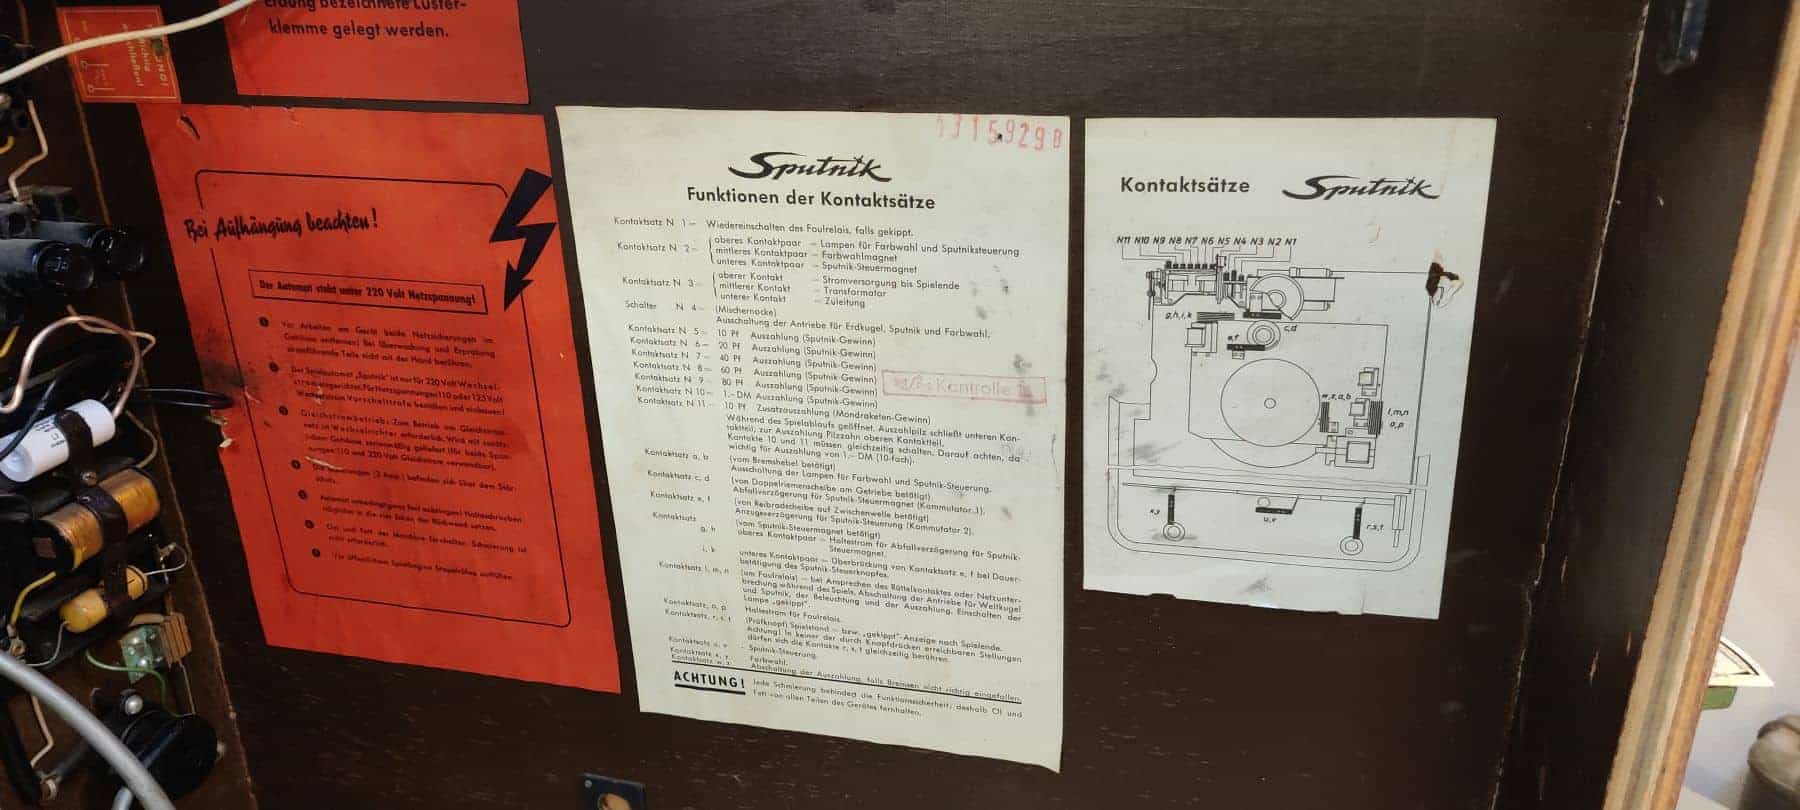 Erdung bezeichnete Lüster-
klemme gelegt werden.
Bei Aufhängung beachten!
Der Automat steht unter 220 Volt Netzspannung!
Vor Arbeiten am Gerät beide Netzsicherungen im
Gehäuse entfernen! Bei Überwachung und Erprobung
stromführende Teile nicht mit der Hand berühren.
Der Spielautomat „Sputnik" ist nur für 220 Volt Wechsel-
strom eingerichtet. Für Netzspannungen 110 oder 125 Volt
Wechselstrom Vorschalttrafo bestellen und einbauen!
Gleichstrombetrieb: Zum Betrieb am Gleichstrom-
netz ist Wechselrichter erforderlich. Wird mit
Gehäuse, serienmäßig geliefert (für beide Span-
nungen 110 und 220 Volt Gleichstrom verwendbar).
Die Sicherungen (2 Amp.) befinden sich über dem
Automat unbedingt fest anbringen!
möglichst in die vier Ecken der Rückwand setzen.
Öl und Fett der Schmierung ist
nicht erforderlich.
Vor öffentlichem Spielbeginn ausfüllen.
Sputnik
Funktionen der Kontaktsätze
Kontaktsatz N 1 – Wiedereinschalten des Foulrelais, falls gekippt.
Kontaktsatz N 2 – oberes Kontaktpaar – Lampen für Farbwahl und Sputniksteuerung
mittleres Kontaktpaar – Farbwahlmagnet
unteres Kontaktpaar – Sputnik-Steuermagnet
Kontaktsatz N 3 – oberer Kontakt – Stromversorgung bis Spielende
mittlerer Kontakt – Transformator
unterer Kontakt – Zuleitung
Schalter N 4 – (Mischernocke)
Ausschaltung der Antriebe für Erdkugel, Sputnik und Farbwahl.
Kontaktsatz N 5 – 10 Pf Auszahlung (Sputnik-Gewinn)
Kontaktsatz N 6 – 20 Pf Auszahlung (Sputnik-Gewinn)
Kontaktsatz N 7 – 40 Pf Auszahlung (Sputnik-Gewinn)
Kontaktsatz N 8 – 60 Pf Auszahlung (Sputnik-Gewinn)
Kontaktsatz N 9 – 80 Pf Auszahlung (Sputnik-Gewinn)
Kontaktsatz N 10 – 1.– DM Auszahlung (Sputnik-Gewinn)
Kontaktsatz N 11 – 10 Pf Zusatzauszahlung (Mondraketen-Gewinn)
Kontrolle
Während des Spielablaufs geöffnet. Auszahlpilz schließt unteren Kon-
taktteil, zur Auszahlung Pilzzahn oberen Kontaktteil.
Kontakte 10 und 11 müssen gleichzeitig schalten. Darauf achten, da
wichtig für Auszahlung von 1.– DM (10-fach).
Kontaktsatz a, b (vom Bremshebel betätigt)
Ausschaltung der Lampen für Farbwahl und Sputnik-Steuerung.
Kontaktsatz c, d (von Doppelriemenscheibe am Getriebe betätigt)
Abfallverzögerung für Sputnik-Steuermagnet (Kommutator 1).
Kontaktsatz e, f (von Reibradscheibe auf Zwischenwelle betätigt)
Anzugsverzögerung für Sputnik-Steuerung (Kommutator 2).
Kontaktsatz (vom Sputnik-Steuermagnet betätigt)
g, h oberes Kontaktpaar – Haltestrom für Abfallverzögerung für Sputnik-
Steuermagnet.
i, k unteres Kontaktpaar – Überbrückung von Kontaktsatz e, f bei Dauer-
betätigung des Sputnik-Steuerknopfes.
Kontaktsatz l, m, n (am Foulrelais) – bei Ansprechen des Rüttelkontaktes oder Netzunter-
brechung während des Spiels. Abschaltung der Antriebe für Weltkugel
und Sputnik, der Beleuchtung und der Auszahlung. Einschalten der
Lampe „gekippt".
Kontaktsatz, o, p Haltestrom für Foulrelais.
Kontaktsatz, r, s, t (Prüfknopf) Spielstand – bzw. „gekippt"-Anzeige nach Spielende.
Achtung! In keiner der durch Knopfdrücken erreichbaren Stellungen
dürfen sich die Kontakte r, s, t gleichzeitig berühren.
Kontaktsatz u, v – Sputnik-Steuerung.
Kontaktsatz x, y – Farbwahl.
Kontaktsatz w, z Abschaltung der Auszahlung, falls Bremsen nicht richtig eingefallen.
ACHTUNG! Jede Schmierung behindert die Funktionssicherheit; deshalb Öl und
Fett von allen Teilen des Gerätes fernhalten.
Kontaktsätze Sputnik
N11 N10 N9 N8 N7 N6 N5 N4 N3 N2 N1
g, h, i, k
c, d
e, f
w, z, a, b
l, m, n
o, p
x, y
u, v
r, s, t